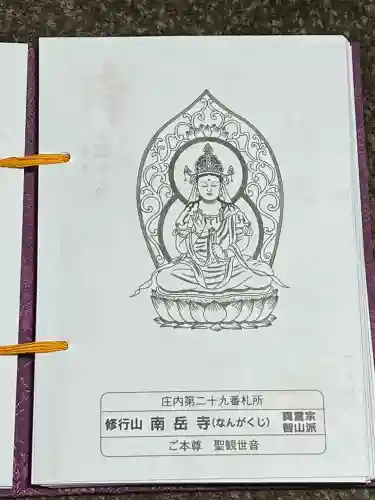 庄内第二十九番札所
修行山 南岳寺(なんがくじ) 真言宗 智山派
ご本尊 聖観世音